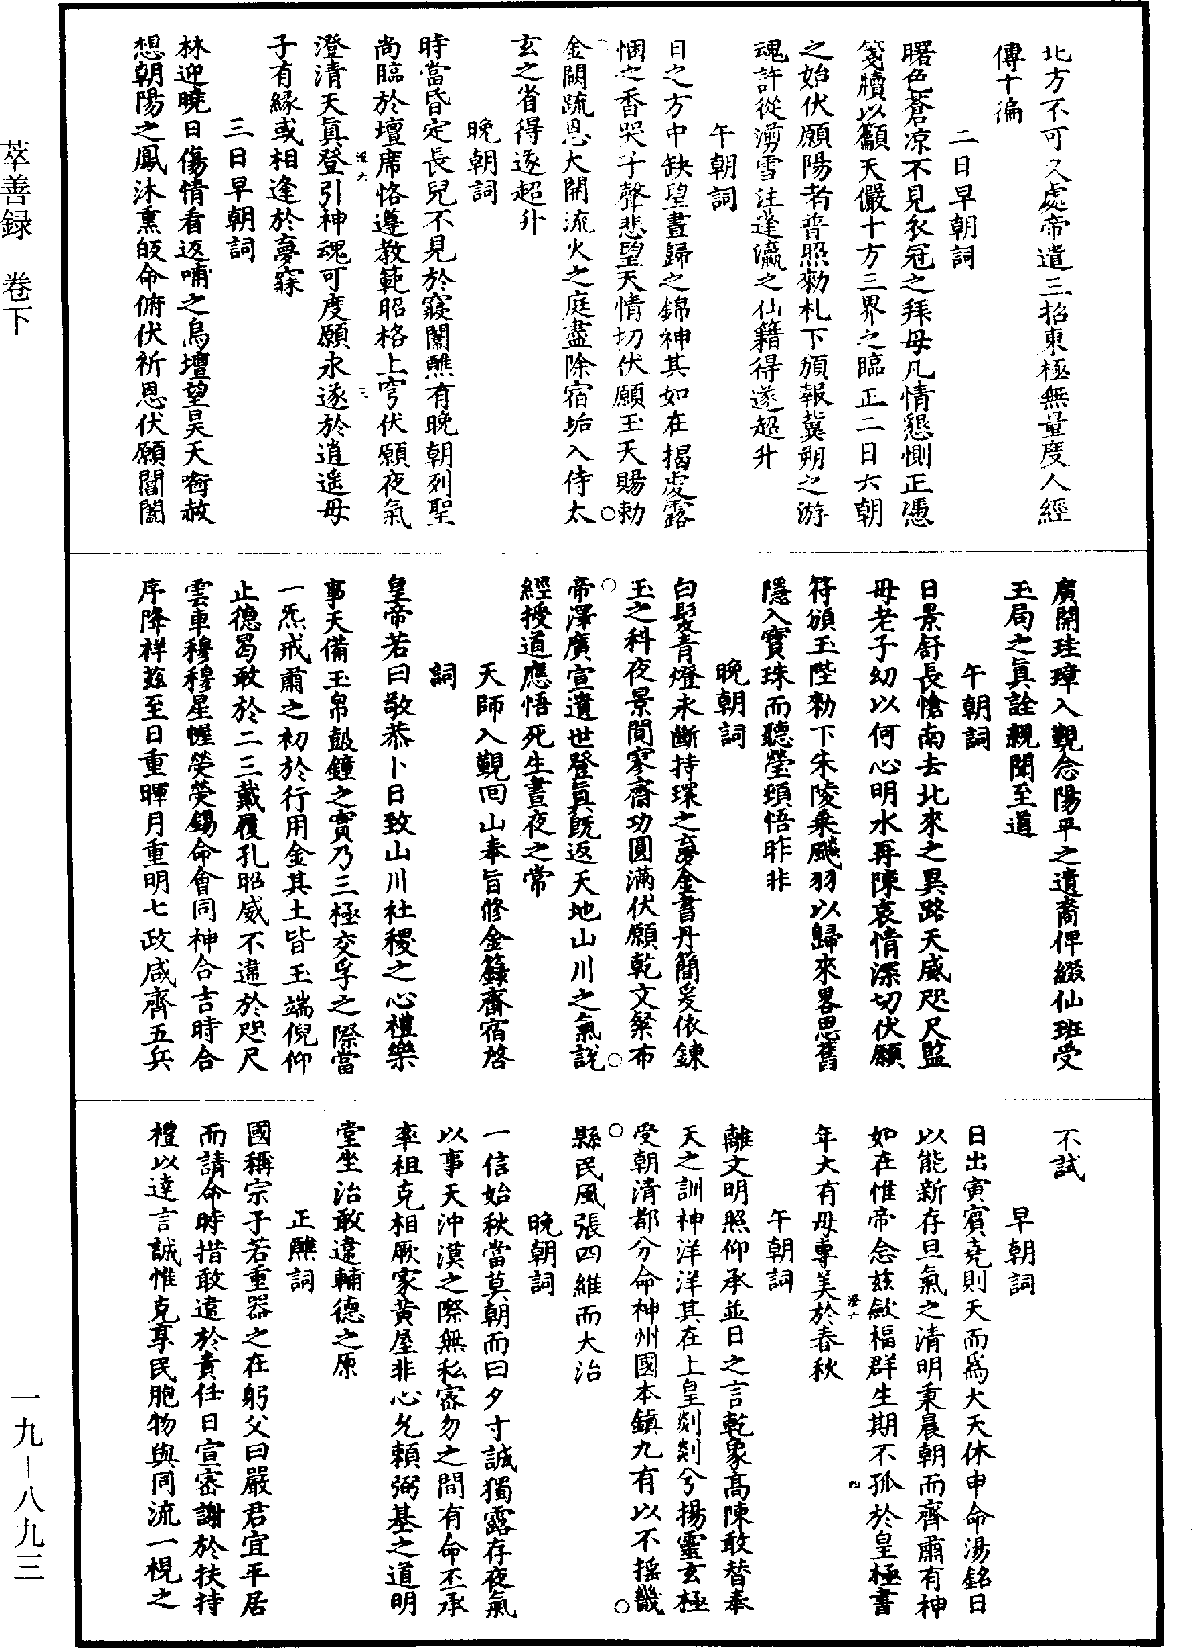 北方不可久處帝遣三招東極無量度人經
傳十徧
二日早朝詞
曙色蒼凉不見衣冠之拜母凡情懇惻正憑
箋牘以籲天儼十方三界之臨正二日六朝
之始伏願陽者普照勑札下頒報冀朔之游
魂許從澡雪注蓬瀛之仙籍得遂超升
午朝詞
日之方中缺望晝歸之錦神其如在揭虔露
悃之香哭子聲悲望天情切伏願玉天賜勅
金闕䟽恩大開流火之庭盡除宿垢入侍太
玄之省得遂超升
晚朝詞
時當昏定長兒不見於寢闈醮有晚朝列聖
尚臨於壇席恪遵教範昭格上穹伏願夜氣
澄清天眞登引神魂可度願永遂於逍遥母
子有緣或相逢於夢寐
三日早朝詞
林迎曉日傷情看返哺之烏壇望吴天銜赦
想朝陽之鳳沐熏皈命俯伏祈恩伏願閶闔
廣開珪璋入覲念陽平之遺裔俾綴仙班受
玉局之眞詮親聞至道
午朝詞
日景舒長愴南去北來之異路天威咫尺監
母老子幼以何心明水再陳哀情深切伏願
符頒玉陛勑下朱陵乗飈羽以歸來畧思舊
隱入寶珠而聽瑩頴悟昨非
晚朝詞
白髮青燈未斷持環之夢金書丹簡爰依鍊
玉之科夜景閴寥齋功圓滿伏願乾文粲布
帝澤廣宣遺世登眞旣返天地山川之氣說
經授道應悟死生晝夜之常
天師入覲回山奉旨修金籙齋宿啓
詞
皇帝若曰敬恭卜日致山川社稷之心禮樂
事天備玉帛鼓鐘之實乃三極交孚之際當
一炁戒肅之初於行用金其土皆玉端倪仰
止德曷敢於二三戴履孔昭威不違於咫尺
雲車穆穆星幄熒熒錫命會同神合吉時合
序降祥玆至日重暉月重明七政咸齊五兵
不試
早朝詞
日出寅賓堯則天而爲大天休申命湯銘日
以能新存旦氣之清明秉晨朝而齊肅有神
如在惟帝念玆歛福群生期不孤於皇極書
年大有毋專美於春秋
午朝詞
離文明照仰承並日之言乾象髙陳敢替奉
天之訓神洋洋其在上皇剡剡兮揚靈玄極
受朝清都分命神州國本鎮九有以不摇畿
縣民風張四維而大治
晚朝詞
一信始秋當莫朝而曰夕寸誠獨露存夜氣
以事天沖漠之際無私宻勿之間有命丕承
率祖克相厥家黃屋非心允賴弼基之道明
堂坐治敢違輔德之原
正醮詞
國稱宗子若重器之在躬父曰嚴君宜平居
而請命時措敢遑於責任日宣宻謝於扶持
禮以達言誠惟克享民胞物與同流一梘之
萃善録　卷下
一九—八九三